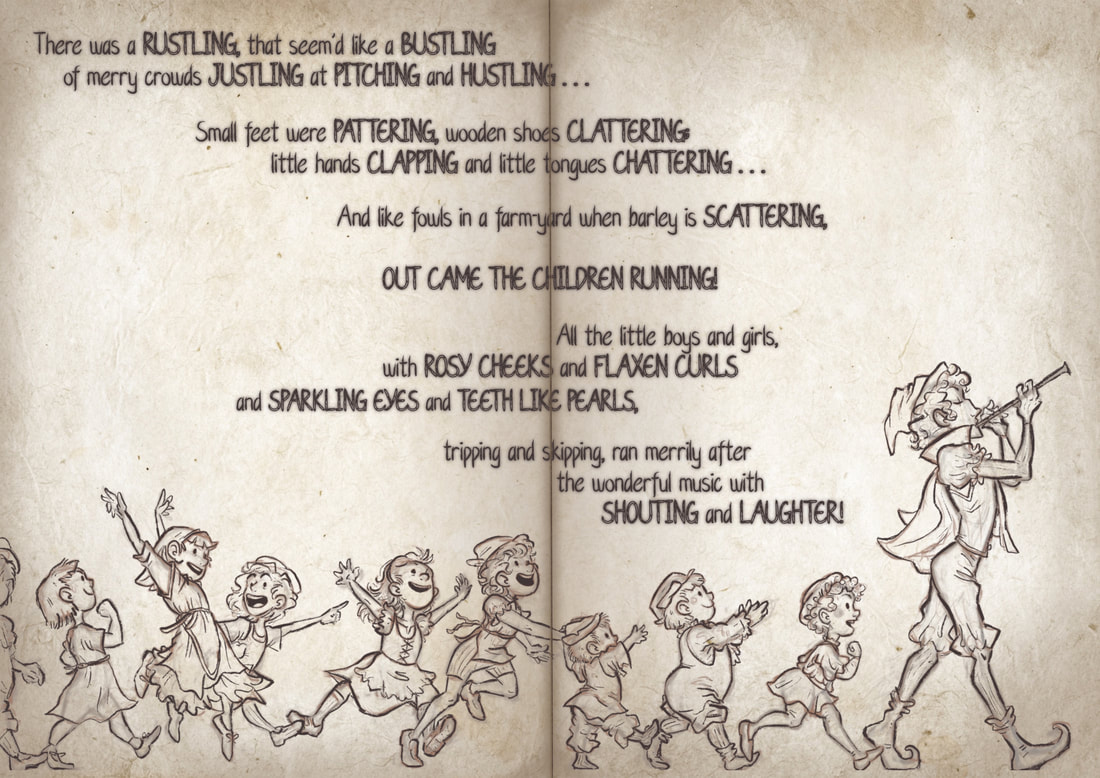 There was a RUSTLING, that seem'd like a BUSTLING
of merry crowds JUSTLING at PITCHING and HUSTLING . . .
Small feet were PATTERING, wooden shoes CLATTERING;
little hands CLAPPING and little tongues CHATTERING . . .
And like fowls in a farm-yard when barley is SCATTERING,
OUT CAME THE CHILDREN RUNNING!
All the little boys and girls,
with ROSY CHEEKS and FLAXEN CURLS
and SPARKLING EYES and TEETH LIKE PEARLS,
tripping and skipping, ran merrily after
the wonderful music with
SHOUTING and LAUGHTER!